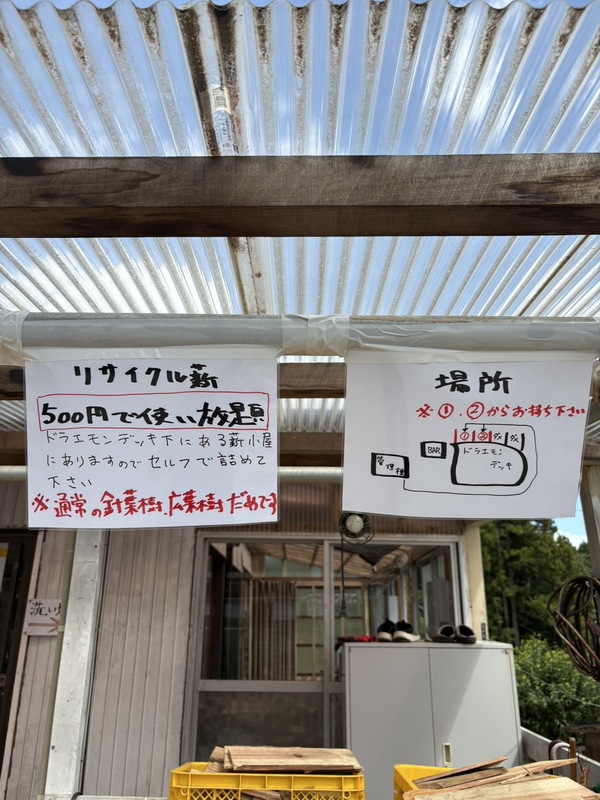 リサイクル薪
500円で使い放題
ドラエモンデッキ下にある薪小屋
にありますのでセルフで詰めて
下さい
※通常の針葉樹、広葉樹だめです
場所
※①、②からお持ち下さい
① ②
BAR
ドラエモン
デッキ
管理棟
洗い